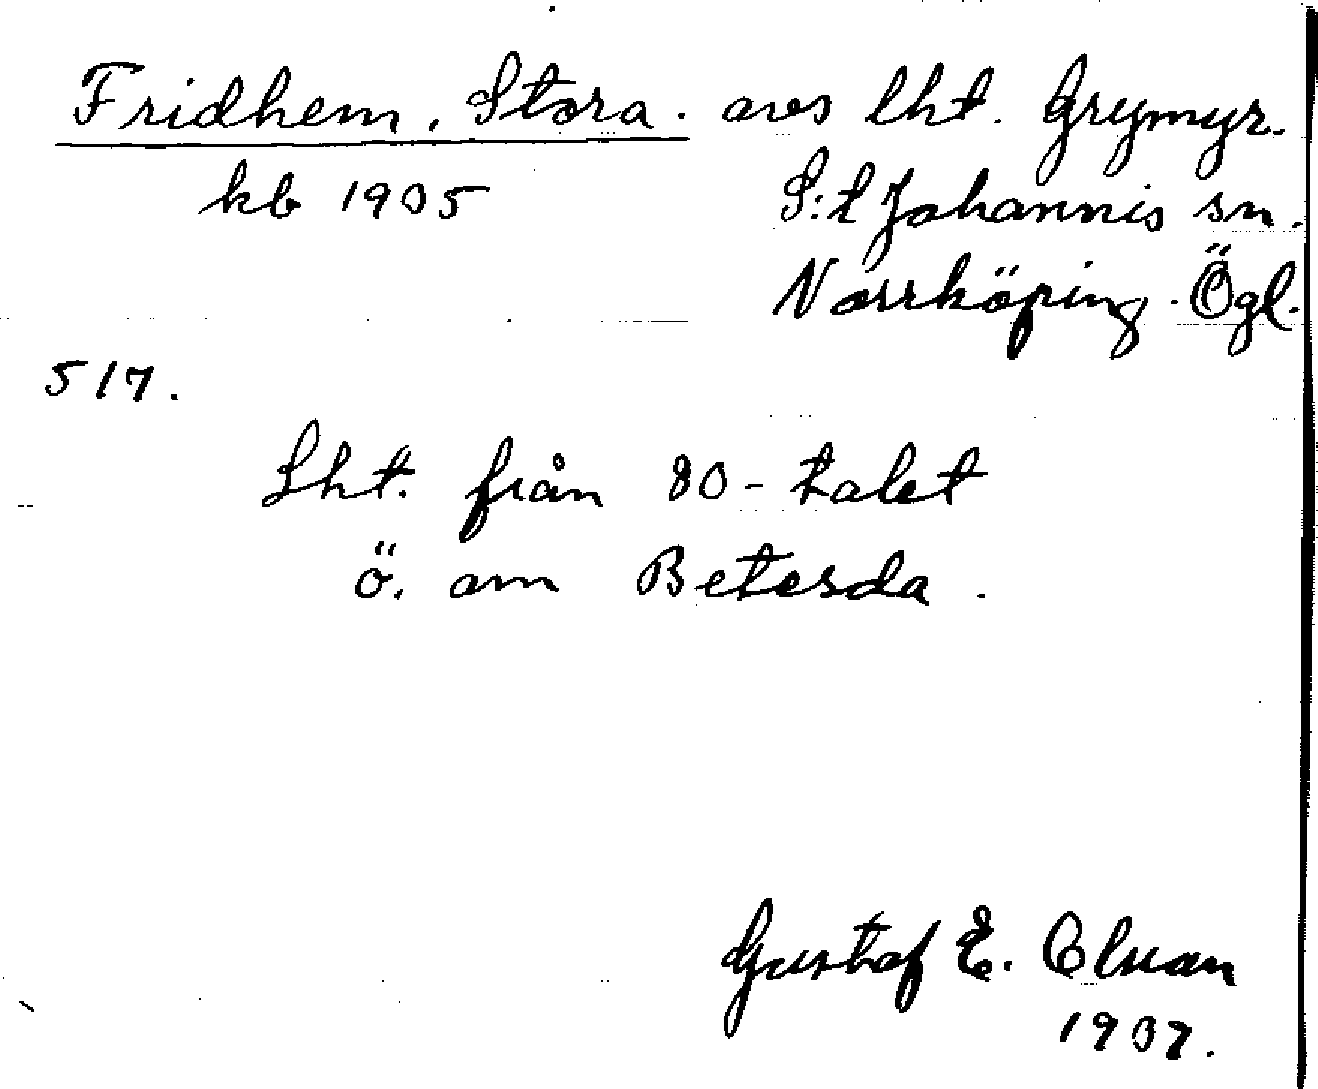 Fridhem, Stora. avs lht. Grymyr.
kb 1905 S:t Johannis sn.
Norrköping. Ögl.
517.
Lht. från 80-talet
ö. om Betesda.
Gustaf E.
1937.